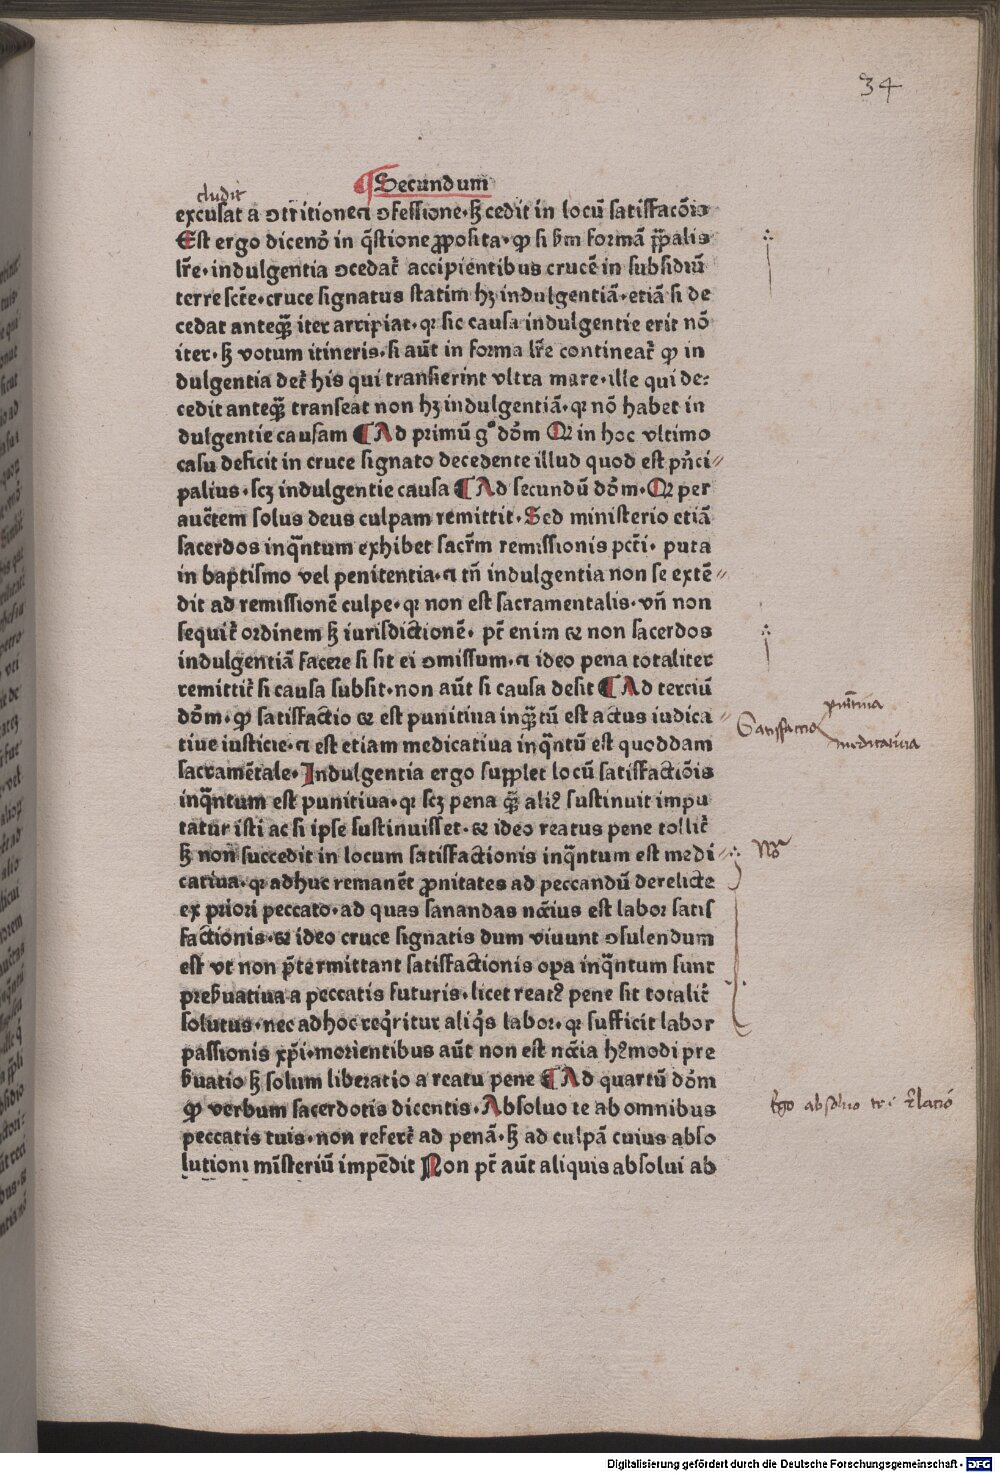 34
¶Secundum
cludit
excusat a ↄtritione ⁊ ↄfessione·sꝫ cedit in locū satisfacōis
Est ergo dicenđ in q̄stione ꝓposita·ꝙ si ẜm formā pͥpalis
lr̄e·indulgentia ↄcedat᷑ accipientibus crucē in subsidiū
terre sct̄e·cruce signatus statim hꝫ indulgentiā·etiā si de
cedat anteqꝫ̄ iter arripiat·qꝛ sic causa indulgentie erit nō
iter·sꝫ votum itineris·si aūt in forma lr̄e contineat᷑ ꝙ in
dulgentia det᷑ his qui transierint vltra mare·ille qui de⸗
cedit anteqꝫ̄ transeat non hꝫ indulgentiā·qꝛ nō habet in
dulgentie causam ¶Ad primū gͦ dō̄m Qꝛ in hoc vltimo
casu deficit in cruce signato decedente illud quod est pn̄ci⸗
palius·scꝫ indulgentie causa ¶Ad secundū dōm·Qꝛ per
auc̄tem solus deus culpam remittit·Sed ministerio etiā
sacerdos inqͣntum exhibet sacr̄m remissionis pct̄i· puta
in baptismo vel penitentia·⁊ tn̄ indulgentia non se extē⸗
dit ad remissionē culpe·qꝛ non est sacramentalis·vn̄ non
sequit᷑ ordinem sꝫ iurisdictionē· pt̄ enim ⁊ non sacerdos
indulgentiā facere si sit ei ↄmissum·⁊ ideo pena totaliter
remittit᷑ si causa subsit·non aūt si causa desit ¶Ad terciū
dōm·ꝙ satisfactio ⁊ est punitiua inqͣꝫtū est actus iudica⸗
tiue iusticie·⁊ est etiam medicatiua inqͣntū est quoddam
Satisfactio punitiua
medicatiua
sacramētale·Indulgentia ergo supplet locū satisfactiōis
inqͣntum est punitiua·qꝛ scꝫ pena qͣꝫ aliꝰ sustinuit impu
tatur isti ac si ipse sustinuisset·⁊ ideo reatus pene tollit᷑
sꝫ non succedit in locum satisfactionis inqͣntum est medi⸗
catiua·qꝛ adhuc remanēt ꝓnitates ad peccandū derelicte
ex priori peccato·ad quas sanandas nc̄cius est labor satis
factionis·⁊ ideo cruce signatis dum viuunt ↄsulendum
est vt non p̄termittant satisfactionis oꝑa inqͣntum sunt
preẜuatiua a peccatis futuris·licet reatꝰ pene sit totalit᷑
solutus·nec ad hoc reqͥritur aliqͥs labor·qꝛ sufficit labor
passionis xp̄i·morientibus aūt non est nc̄cia hꝰmodi pre
ẜuatio sꝫ solum liberatio a reatu pene ¶Ad quartū dōm
ꝙ verbum sacerdotis dicentis·Absoluo te ab omnibus
Ego absoluo te
peccatis tuis·non refert᷑ ad penā·sꝫ ad culpā cuius abso
lutioni mīsteriū impēdit Non pt̄ aūt aliquis absolui ab
Digitalisierung gefördert durch die Deutsche Forschungsgemeinschaft - DFG